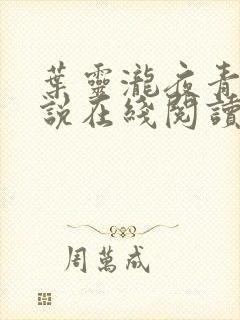 葉靈瀧夜青
說在綫閱讀
周萬成